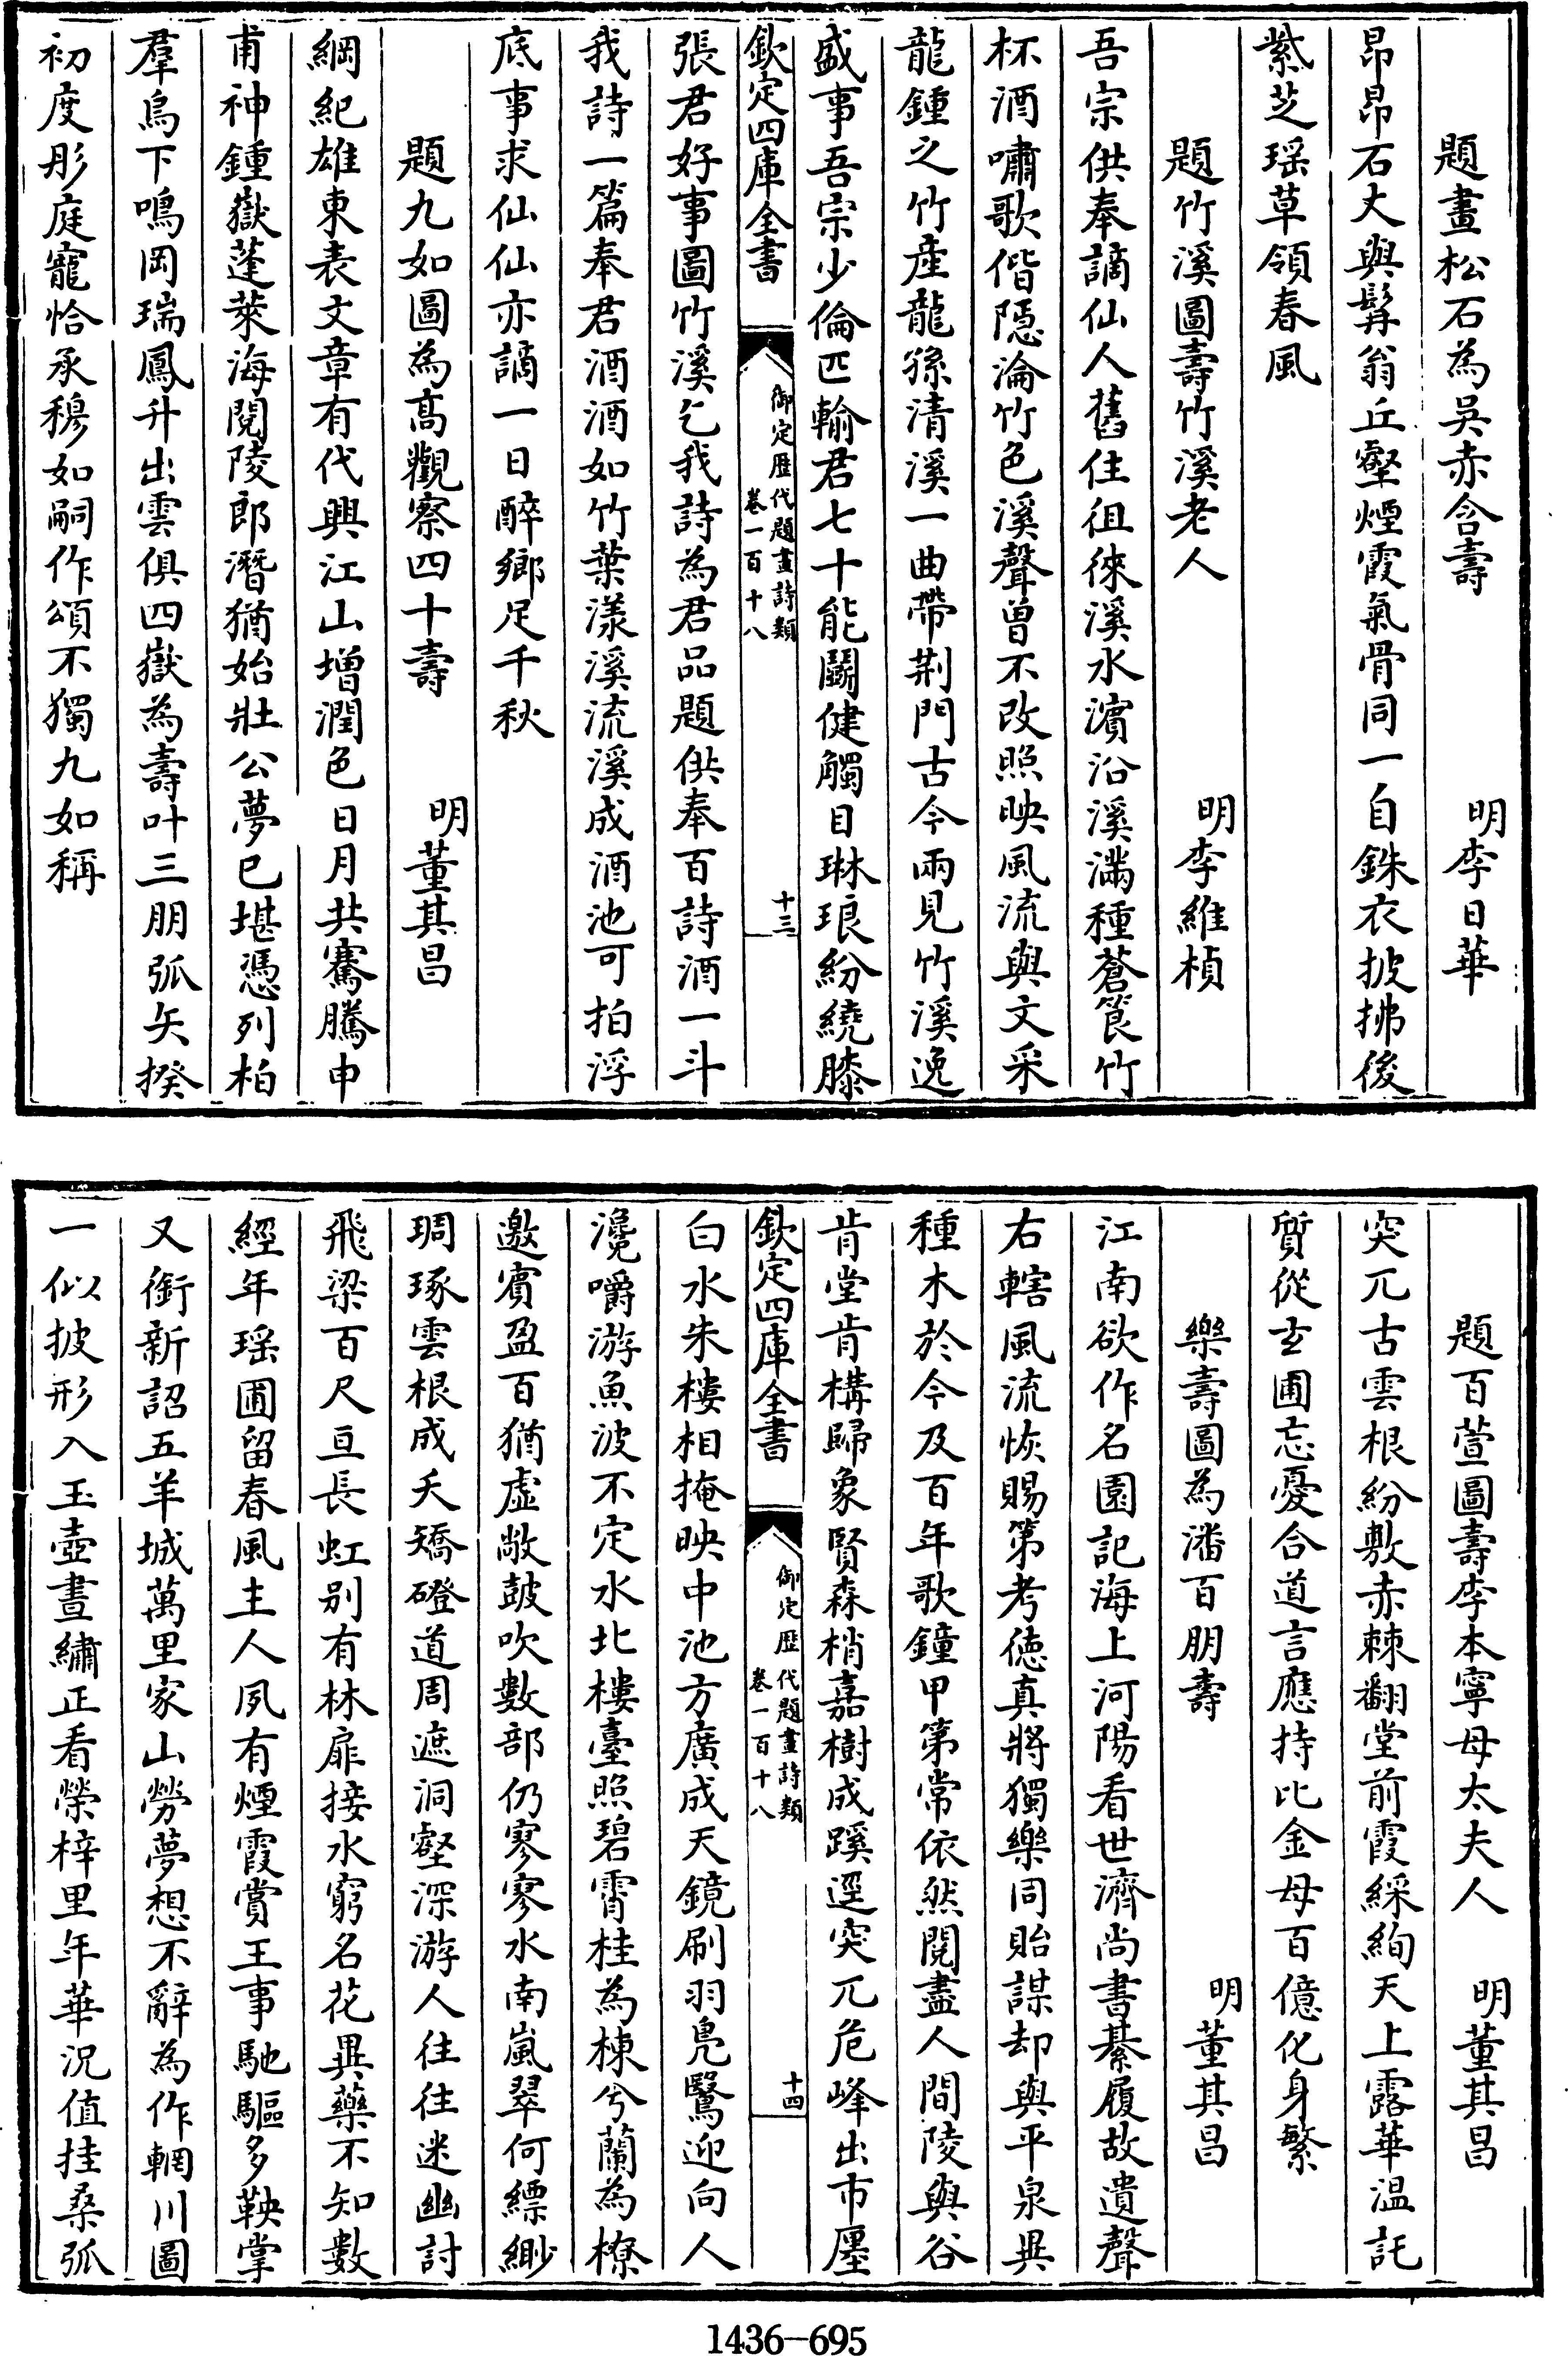 題畫松石為吳赤含壽　明李日華
昂昂石丈與髯翁丘壑煙霞氣骨同一自銖衣披拂後
紫芝瑶草領春風
題竹溪圖壽竹溪老人　明李維楨
吾宗供奉謫仙人舊住徂徠溪水濵沿溪滿種蒼筤竹
杯酒嘯歌偕隱淪竹色溪聲曾不改照映風流與文采
龍鍾之竹産龍孫清溪一曲帶荆門古今兩見竹溪逸
盛事吾宗少倫匹輸君七十能鬬健觸目琳琅紛繞膝
欽定四庫全書
御定歴代題畫詩類
卷一百十八
十三
張君好事圖竹溪乞我詩為君品題供奉百詩酒一斗
我詩一篇奉君酒酒如竹葉漾溪流溪成酒池可拍浮
底事求仙仙亦謫一日醉鄉足千秋
題九如圖為髙觀察四十壽　明董其昌
綱紀雄東表文章有代興江山增潤色日月共騫騰申
甫神鍾嶽蓬萊海閲陵郎潛猶始壯公夢已堪憑列柏
羣烏下鳴岡瑞鳳升出雲俱四嶽為壽叶三朋弧矢揆
初度彤庭寵恰承穆如嗣作頌不獨九如稱
題百萱圖壽李本寧母太夫人　明董其昌
突兀古雲根紛敷赤棘翻堂前霞綵絢天上露華温託
質從𤣥圃忘憂合道言應持比金母百億化身繁
樂壽圖為潘百朋壽　明董其昌
江南欲作名園記海上河陽看世濟尚書綦履故遺聲
右轄風流恢賜第考徳真將獨樂同貽謀却與平泉異
種木於今及百年歌鐘甲第常依然閲盡人間陵與谷
肯堂肯構歸象賢森梢嘉樹成蹊逕突兀危峰出市㕓
欽定四庫全書
御定歴代題畫詩類
卷一百十八
十四
白水朱樓相掩映中池方廣成天鏡刷羽鳧鷖迎向人
瀺嚼游魚波不定水北樓臺照碧霄桂為棟兮蘭為橑
邀賓盈百猶虚敞鼓吹數部仍寥寥水南嵐翠何縹緲
琱琢雲根成夭矯磴道周遮洞壑深游人往往迷幽討
飛梁百尺亘長虹别有林扉接水窮名花異藥不知數
經年瑶圃留春風主人夙有煙霞賞王事馳驅多鞅掌
又銜新詔五羊城萬里家山勞夢想不辭為作輞川圖
一似披形入玉壺晝繡正看榮梓里年華況值挂桑弧
1436-695